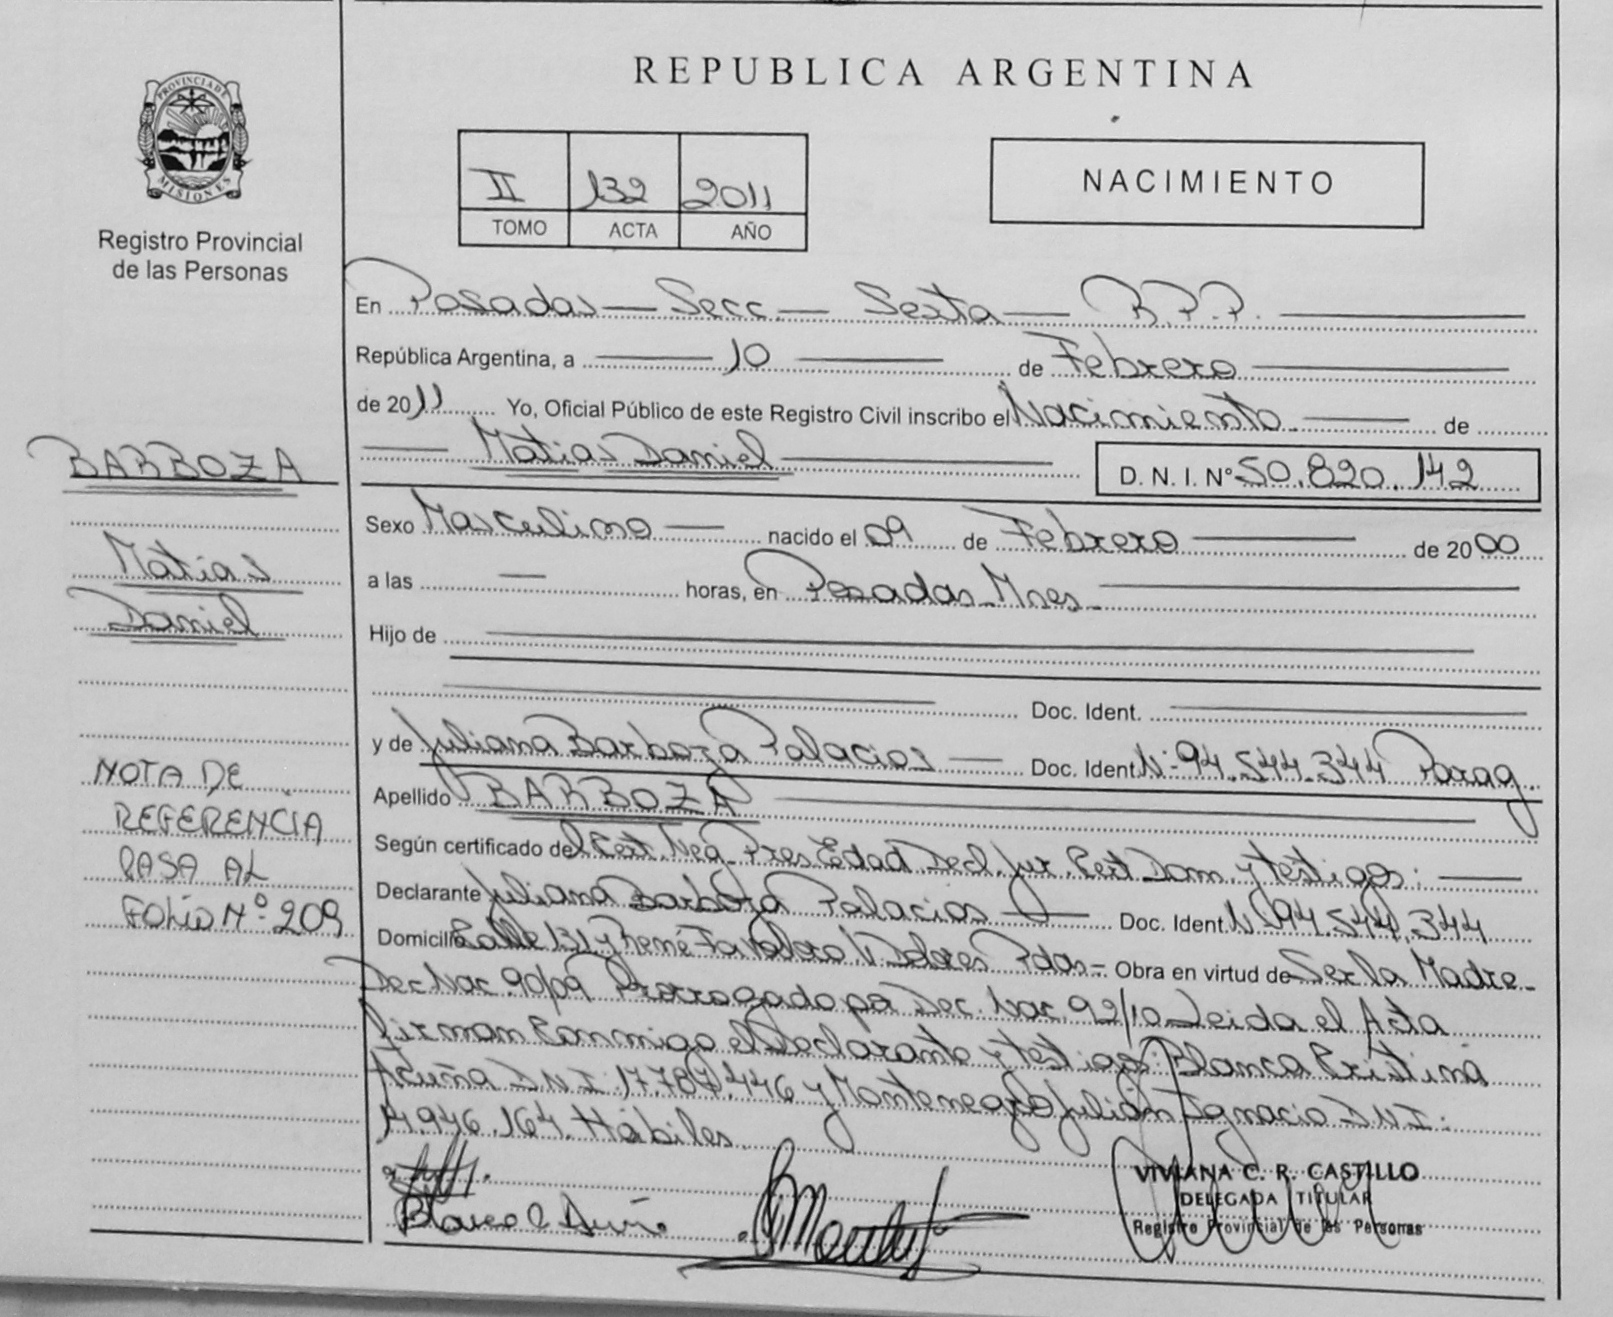 REPUBLICA ARGENTINA
PROVINCIA DE MISIONES
Registro Provincial
de las Personas
II 132 2011
TOMO ACTA AÑO
NACIMIENTO
En Posadas — Secc. — Sexta — R.P.P.
República Argentina, a 10 de Febrero
de 2011 Yo, Oficial Público de este Registro Civil inscribo el Nacimiento de
Matias Daniel D. N. I. Nº 50.820.142
Sexo Masculino nacido el 09 de Febrero de 2000
a las — horas, en Posadas Mnes.
Hijo de
Doc. Ident.
y de Juliana Barboza Palacios Doc. Ident. Nº 94.544.344 Parag.
Apellido BARBOZA
Según certificado del Cert. Neg. Pres Edad Decl. Jur. Cert Dom y testigos:
Declarante Juliana Barboza Palacios Doc. Ident. Nº 94.544.344
Domicilio Calle 131 y René Favaloro Vº Dolores Pdas - Obra en virtud de Ser la Madre
Dec Nac. 90/09 Prorrogado por Dec. Nac 92/10 Leida el Acta
firman conmigo el Declarante y testigos: Blanca Cristina
Acuña D N I: 17.787.446 y Montenegro Julián Ignacio D N I:
14.946.164. Hábiles.
Blanca C Acuña
VIVIANA C. R. CASTILLO
DELEGADA TITULAR
Registro Provincial de las Personas
BARBOZA
Matias
Daniel
NOTA DE
REFERENCIA
PASA AL
FOLIO Nº 209